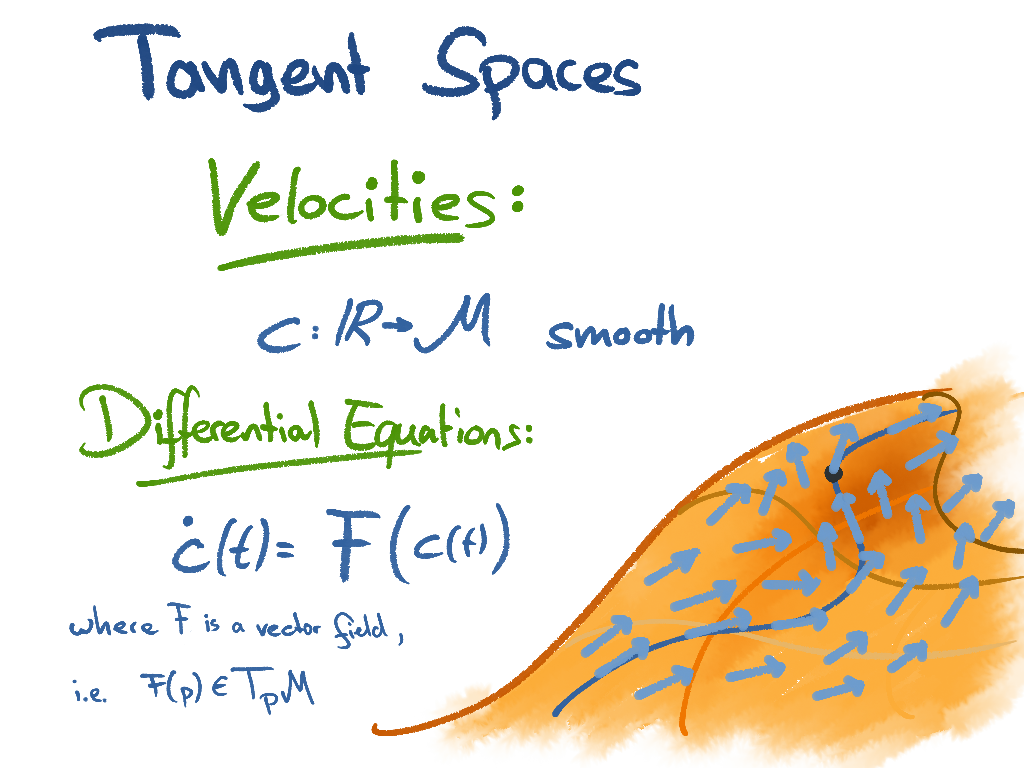 Tangent Spaces
Velocities:
c : ℝ → M smooth
Differential Equations:
ċ(t) = F(c(t))
where F is a vector field,
i.e. F(p) ∈ TₚM